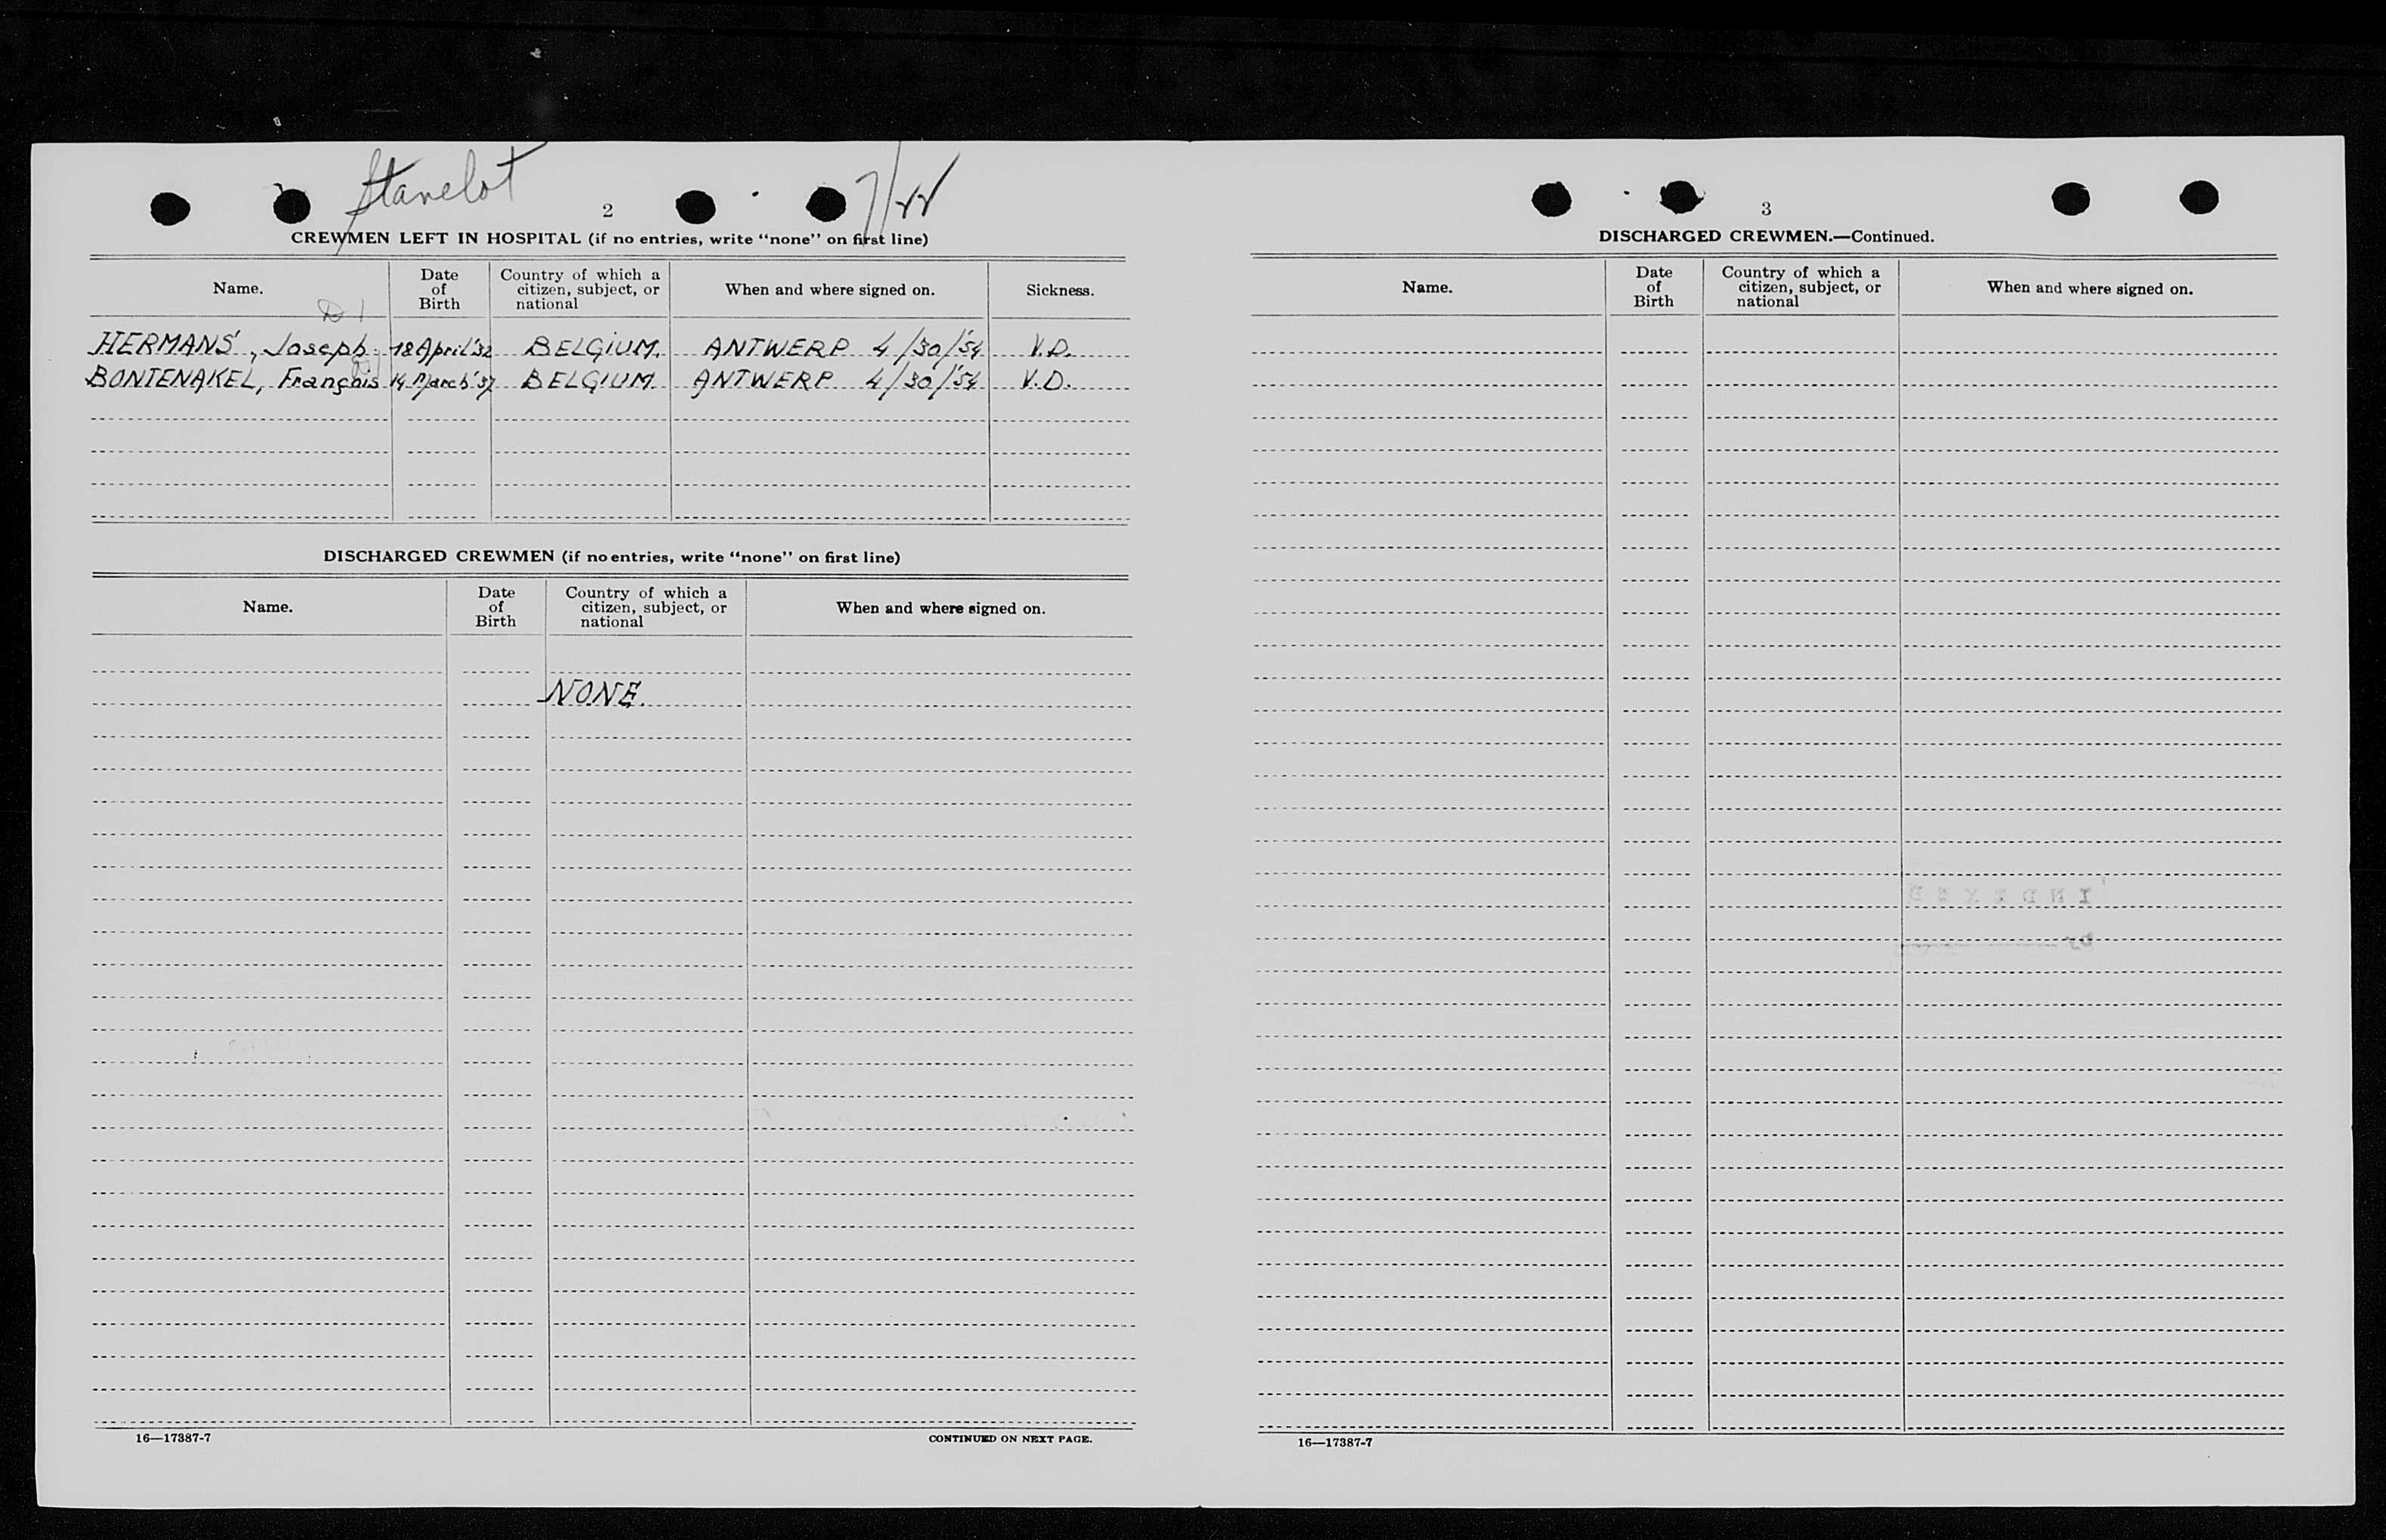 Stavelot 7/22
2
CREWMEN LEFT IN HOSPITAL (if no entries, write “none” on first line)
Name. Date of Birth Country of which a citizen, subject, or national When and where signed on. Sickness.
D 1
HERMANS, Joseph. 18 April '32 BELGIUM. ANTWERP 4/30/'54 V.D.
BONTENAKEL, François 14 March '37 BELGIUM. ANTWERP 4/30/'54 V.D.
DISCHARGED CREWMEN (if no entries, write “none” on first line)
Name. Date of Birth Country of which a citizen, subject, or national When and where signed on.
NONE.
16—17387-7 CONTINUED ON NEXT PAGE.
3
DISCHARGED CREWMEN.—Continued.
Name. Date of Birth Country of which a citizen, subject, or national When and where signed on.
INDEXED
by
16—17387-7